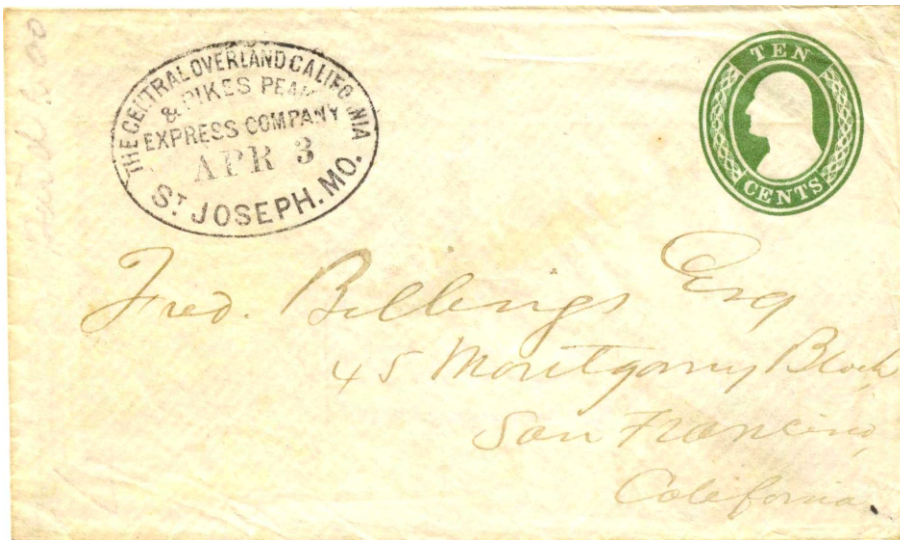 THE CENTRAL OVERLAND CALIFORNIA
& PIKES PEAK
EXPRESS COMPANY
APR 3
ST JOSEPH. MO.
TEN
CENTS
Fred. Billings Esq
45 Montgomery Block
San Francisco,
California.